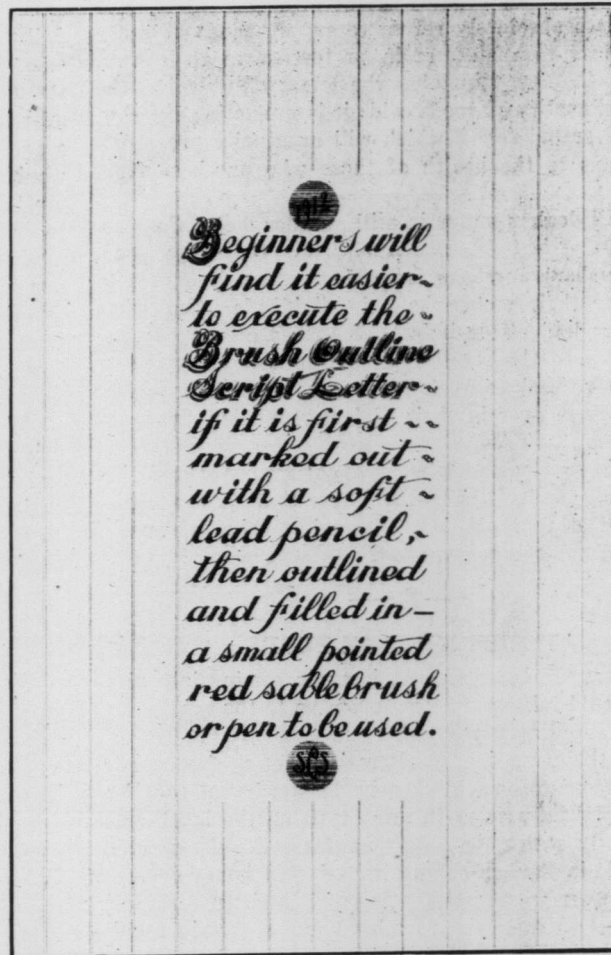 Beginners will
find it easier~
to execute the~
Brush Outline
Script Letter~
if it is first ~~
marked out ~
with a soft ~
lead pencil,~
then outlined
and filled in—
a small pointed
red sable brush
or pen to be used.